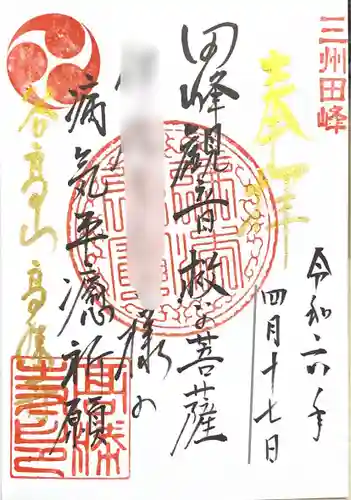 三州田峰
奉拝
令和六年
四月十七日
田峰観音救う菩薩
様の
病気平癒祈願
谷高山 高勝寺